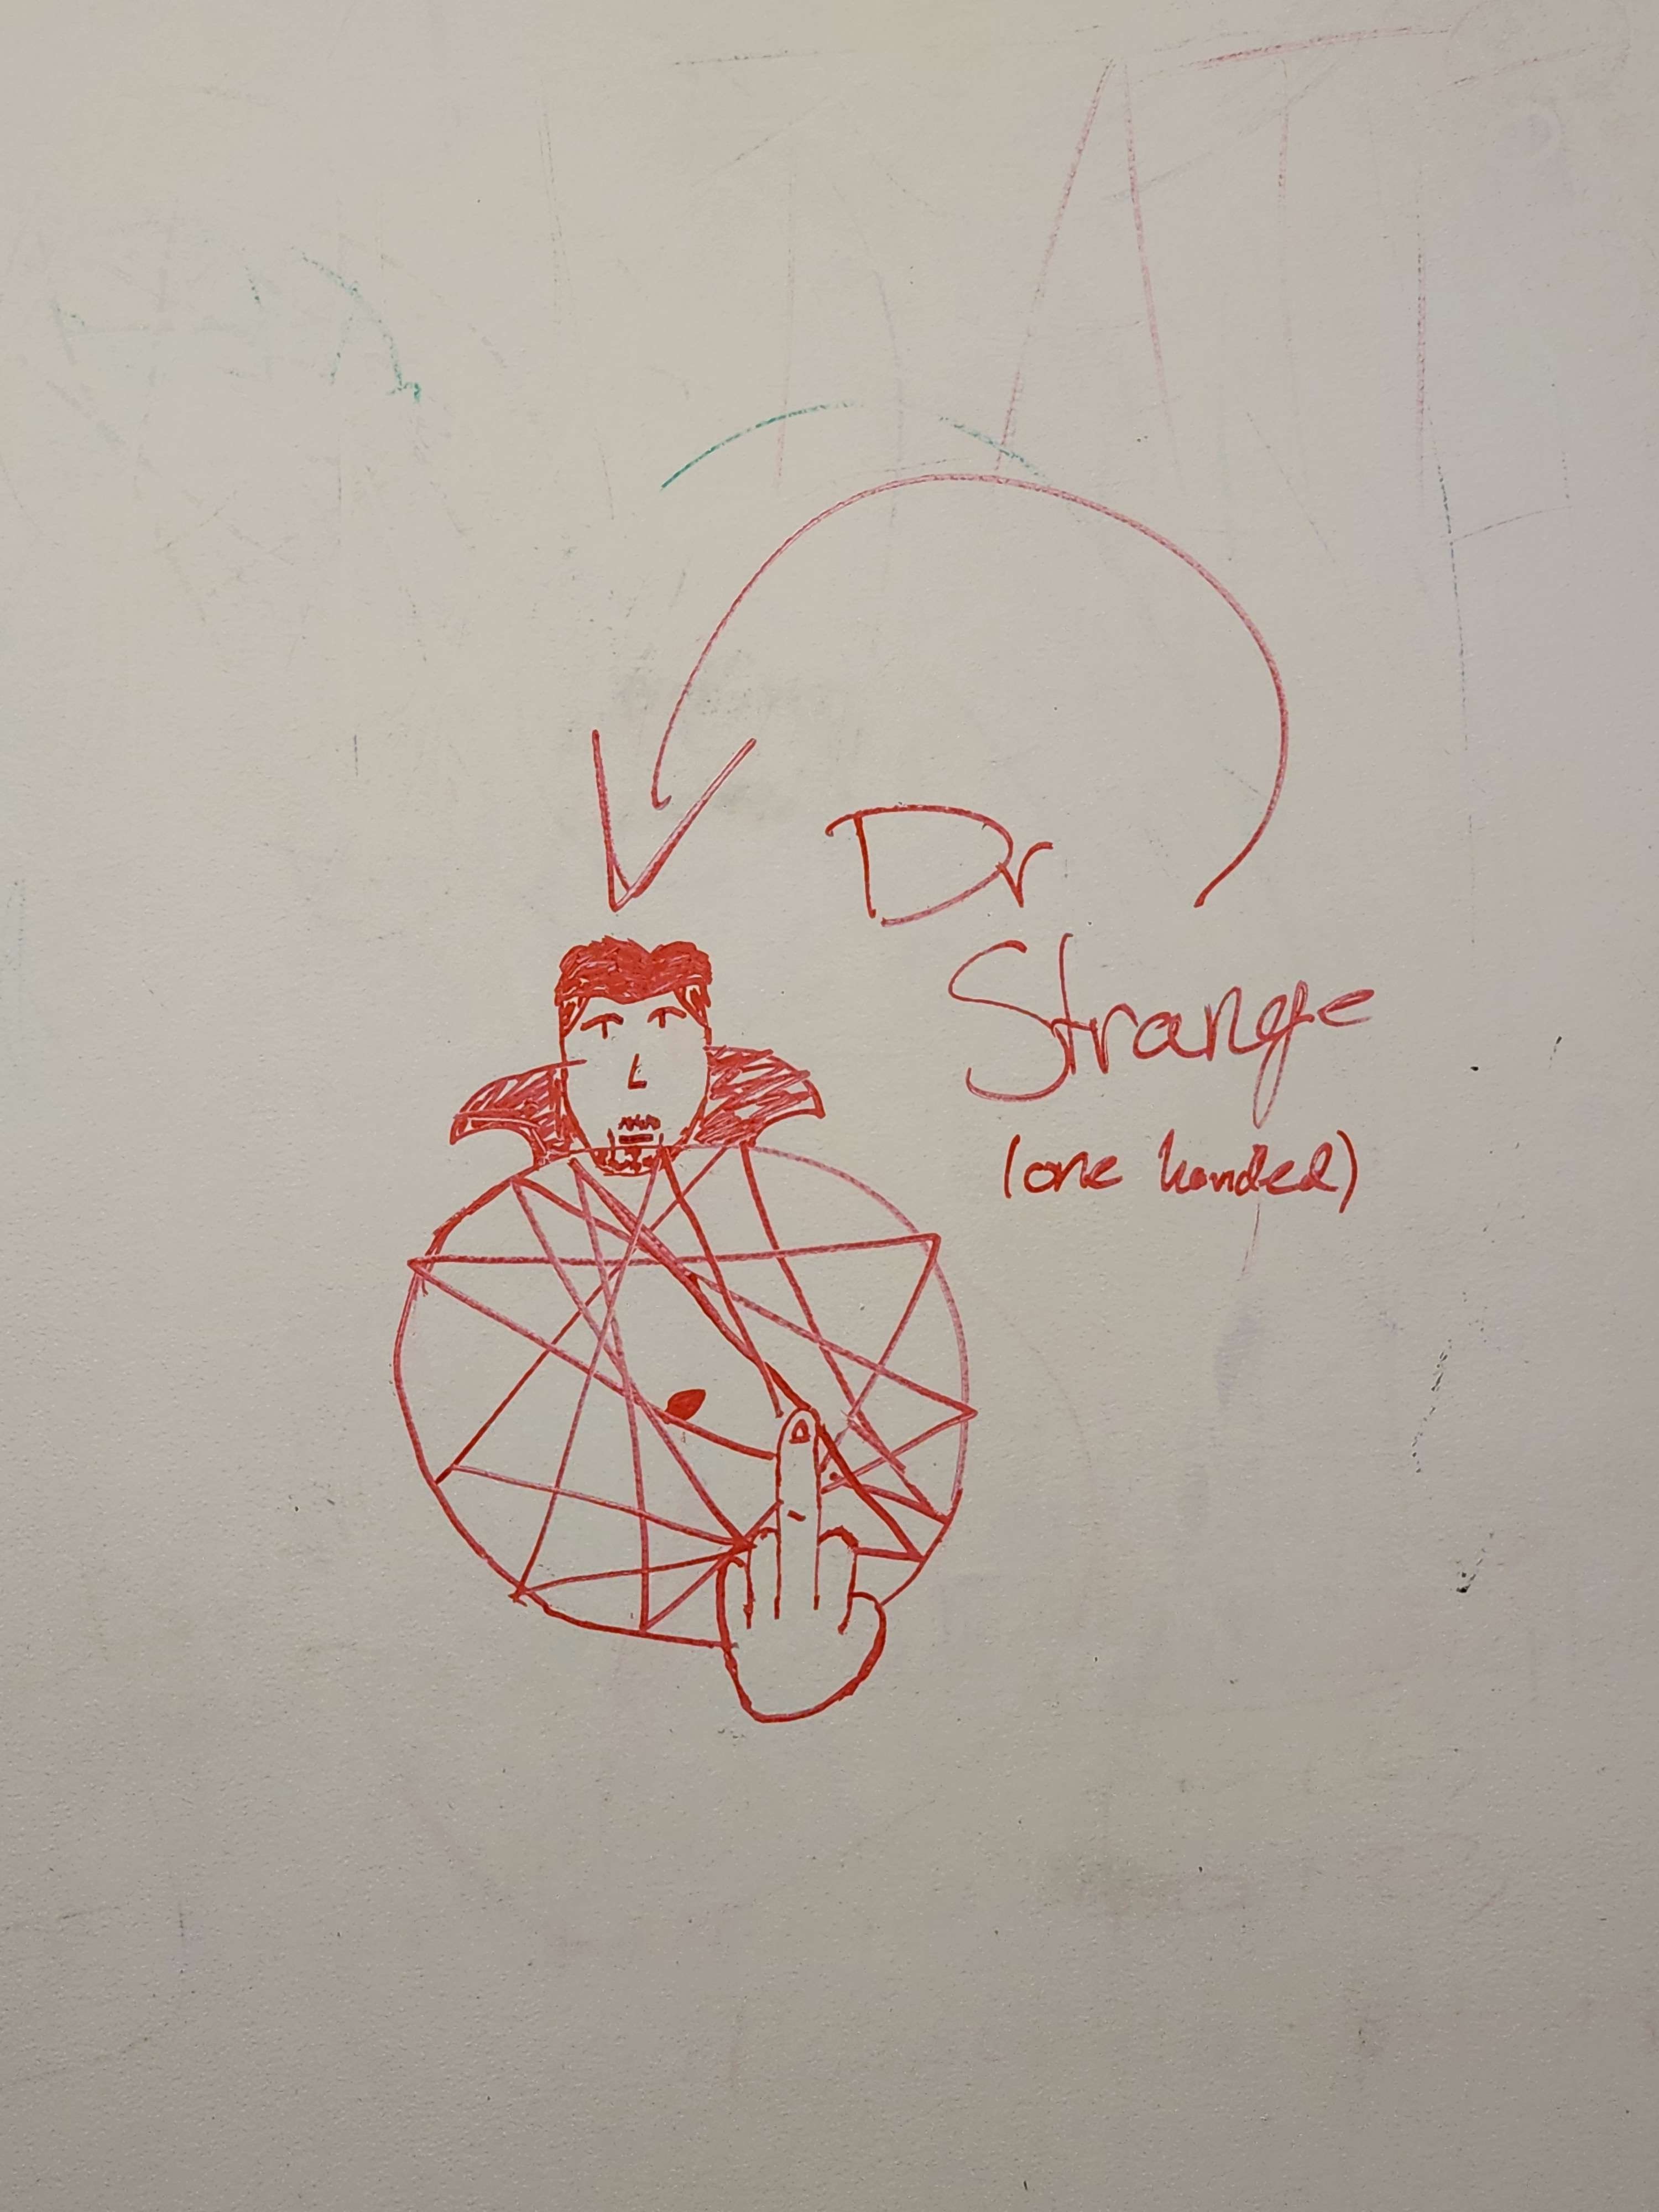 Dr
Strange
(one handed)